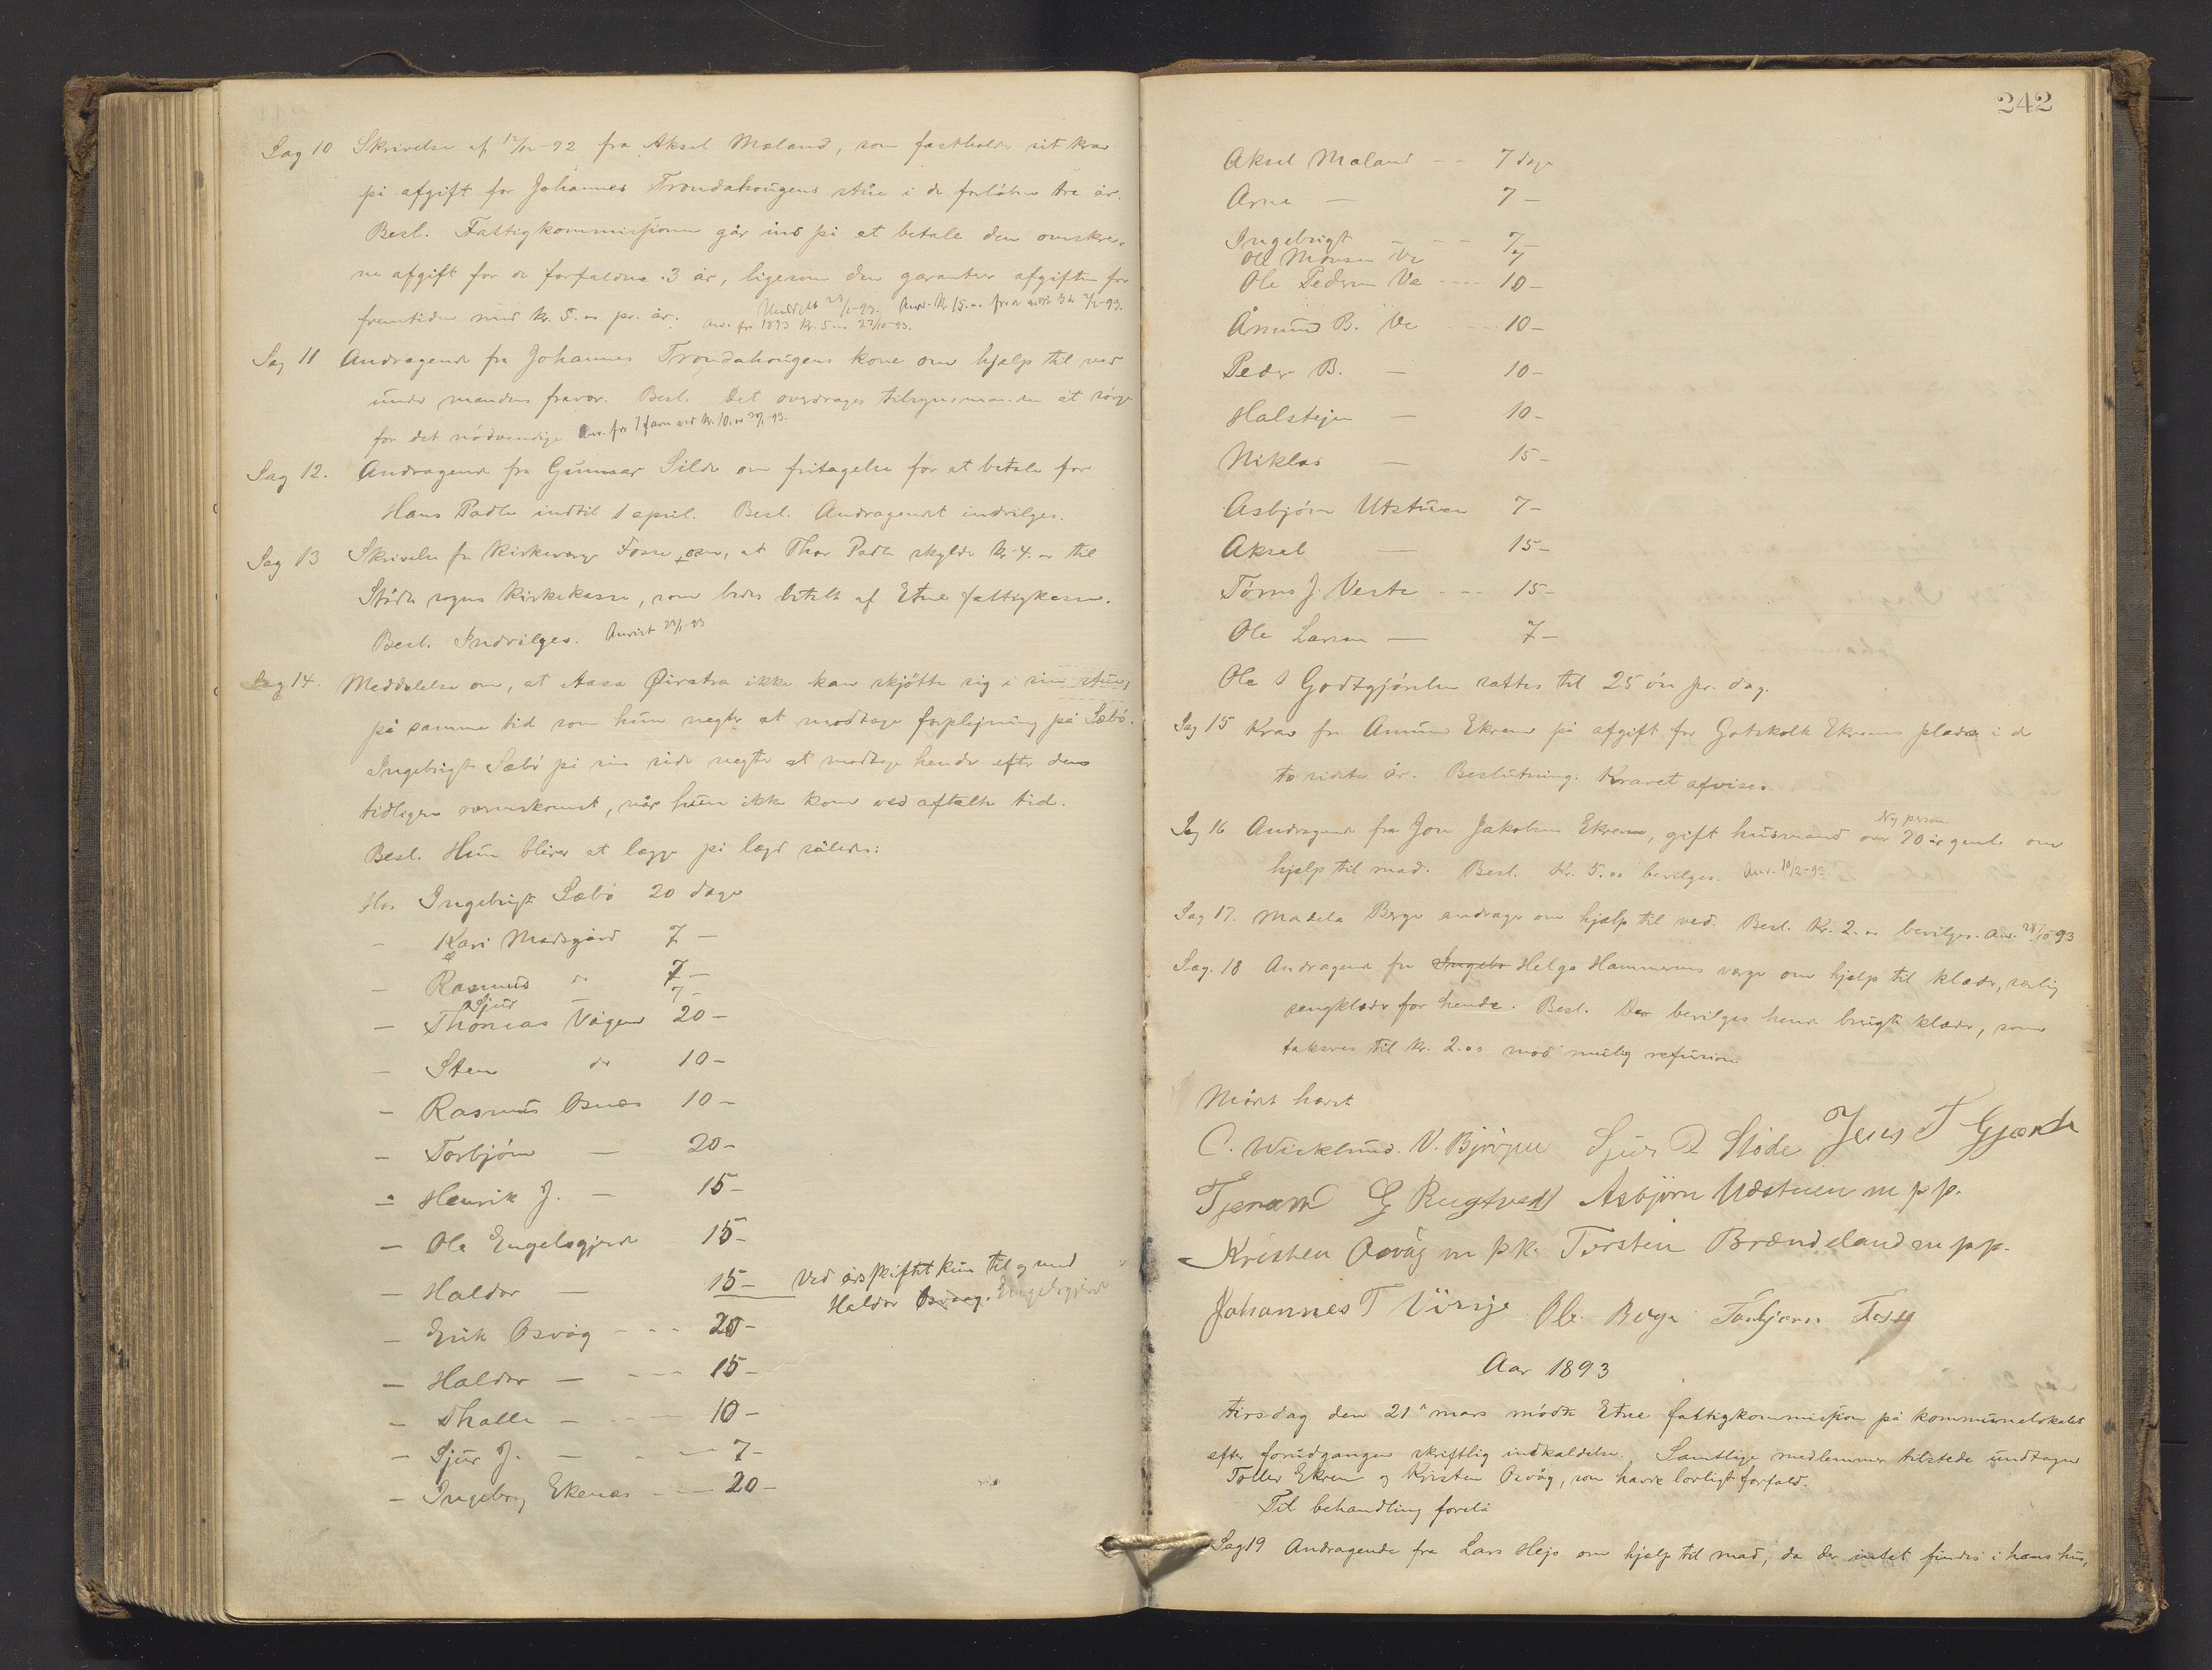 Sag 10 Skrivelse af 12/12-92 fra Aksel Mæland, som fastholder sit krav
på afgift for Johannes Trondahougens stue i de forløbne tre år.
Besl. Fattigkommissjonen går ind på at betale den omskrev-
ne afgift for de forfaldne 3 år, ligesom den garanterer afgiften for
fremtiden med kr. 5.00 pr. år. Anv. kr 15.00
anv. for 1893 kr. 5.00 23/10-93.
Sag 11 Andragende fra Johannes Trondahougens kone om hjælp til ved
under mandens fravær. Besl. Det overdrages tilsynsmanden at sørge
for det nødvendige Anv. for 1 favn ved kr. 10.00
Sag 12. Andragende fra Gunnar Silde om fritagelse for at betale for
Hans Padle indtil 1 april. Besl. Andragendet indvilges.
Sag 13 Skrivelse fra kirkeværge Fosse om, at Thor Padle skylder kr 4.00 til
Støde sogns kirkekasse, som bedes betalt af Etne fattigkasse.
Besl. Indvilges. Anvist
Sag 14. Meddelelse om, at Aasa Øirstra ikke kan skjøtte sig i sin stue,
på samme tid som hun negter at modtage forplejning på Sæbø.
Ingebrigt Sæbø på sin side negter at modtage hende efter den
tidligere overenskomst, når hun ikke kom ved aftalte tid.
Besl. Hun bliver at lægge på lægd således:
Hos Ingebrigt Sæbø 20 dage
- Kari Mæsgård 7 -
- Rasmus do 7 -
Sjur - 7 -
- Thomas Vågen 20 -
- Sten do 10 -
- Rasmus Osnes 10 -
- Torbjørn - 20 -
- Henrik J. - 15 -
- Ole Engelsgjerd 15 -
- Haldor - 15 - Ved årsskiftet kun til og med
Haldor Osvaag. Engelsgjerd
- Erik Osvåg - - - 20 -
- Haldor - - - - 15 -
- Thalle - - - 10 -
- Sjur J. - - - 7 -
- Ingebrig Ekenes - - - 20 -
242
Aksel Mæland - - 7 dage
Arne - 7 -
Ingebrigt - - - 7 -
Ole Monsen Ve 7
Ole Pedersen Ve - - - - 10 -
Åmund B. Ve - - - 10 -
Peder B. - 10 -
Halstejn - 10 -
Niklas - 15 -
Asbjørn Utstuen 7 -
Aksel - 15 -
Tørres J. Veste - - - 15 -
Ole Larsen - 7 -
Godtgjørelsen sættes til 25 øre pr. dag.
Sag 15 Krav fra Amund Ekrene på afgift for Gotskalk Ekrenes plads i de
to sidste år. Beslutning: Kravet afvises.
Ny person.
Sag 16 Andragende fra Jon Jakobsen Ekrene, gift husmand over 70 år gml. om
hjælp til mad. Besl. Kr. 5.00 bevilges. Anv. 10/2-93.
Sag 17. Madela Berge andrager om hjælp til ved. Besl. Kr. 2.00 bevilges. Anv. 28/10 93
Sag. 18 Andragende fra Ingebr Helga Hammerens verge om hjælp til klæder, særlig
sengklæder for hende. Besl. Der bevilges hende brugte klæder, som
takseres til kr. 2.00 mod mulig refusion
Mødet hævet
C. Wicklund. V. Bjørgen Sjur R Støde Jens T Gjærde
Tjeram G Rugtvedt Asbjørn Udstuen m p p.
Kristen Osvåg m p k. Torstein Brændeland m p p.
Johannes T Vinje Ole Berge Torbjørn Fosse
Aar 1893
tirsdag den 21de mars mødte Etne fattigkommissjon på kommunelokalet
efter forudgangen skriftlig indkaldelse. Samtlige medlemmer tilstede undtagen
Tollev Ekrene og Kristen Osvåg, som havde lovligt forfald.
Til behandling forelå
Sag 19 Andragende fra Lars Hejo om hjælp til mad, da der intet findes i hans hus,